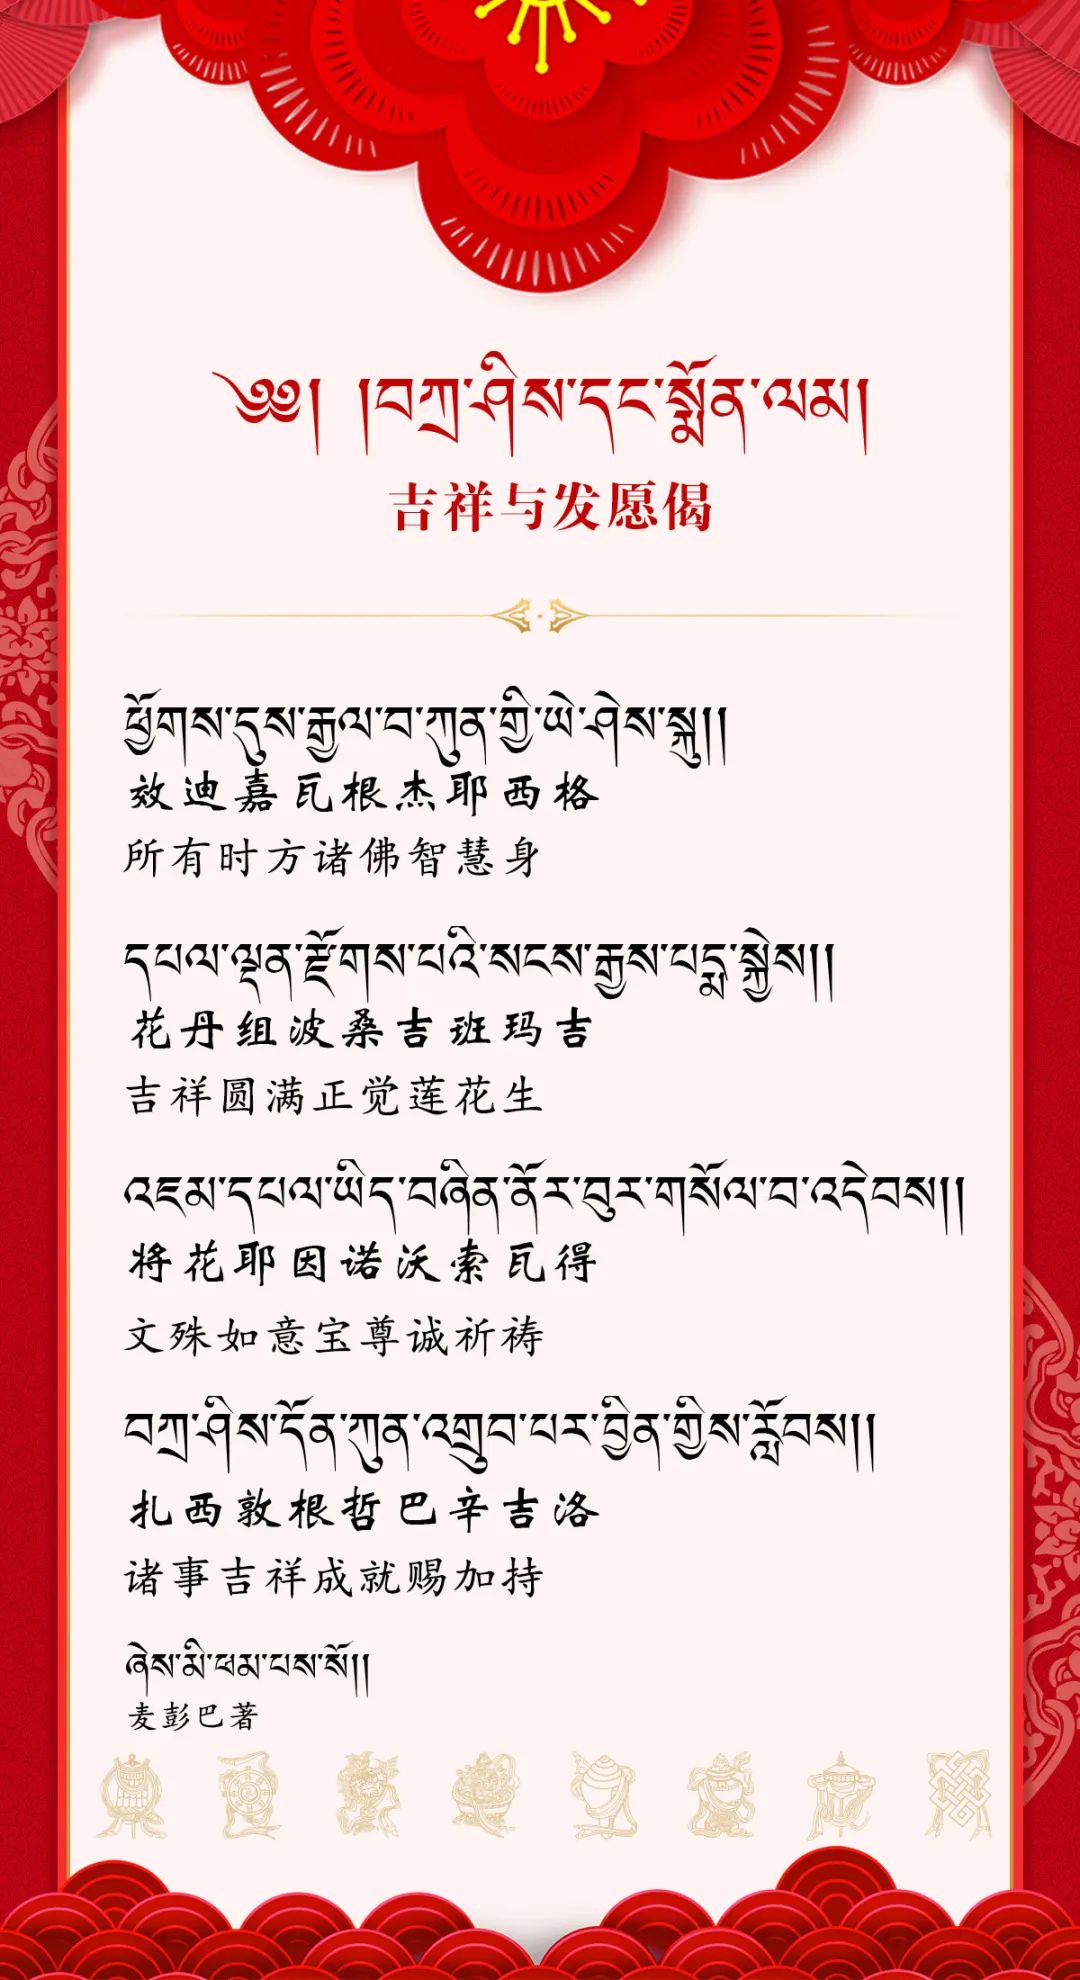 ༄༅། །བཀྲ་ཤིས་དང་སྨོན་ལམ།
吉祥与发愿偈
ཕྱོགས་དུས་རྒྱལ་བ་ཀུན་གྱི་ཡེ་ཤེས་སྐུ།།
效迪嘉瓦根杰耶西格
所有时方诸佛智慧身
དཔལ་ལྡན་རྫོགས་པའི་སངས་རྒྱས་པདྨ་སྐྱེས།།
花丹组波桑吉班玛吉
吉祥圆满正觉莲花生
འཇམ་དཔལ་ཡིད་བཞིན་ནོར་བུར་གསོལ་བ་འདེབས།།
将花耶因诺沃索瓦得
文殊如意宝尊诚祈祷
བཀྲ་ཤིས་དོན་ཀུན་འགྲུབ་པར་བྱིན་གྱིས་རློབས།།
扎西敦根哲巴辛吉洛
诸事吉祥成就赐加持
ཞེས་མི་ཕམ་པས་སོ།།
麦彭巴著